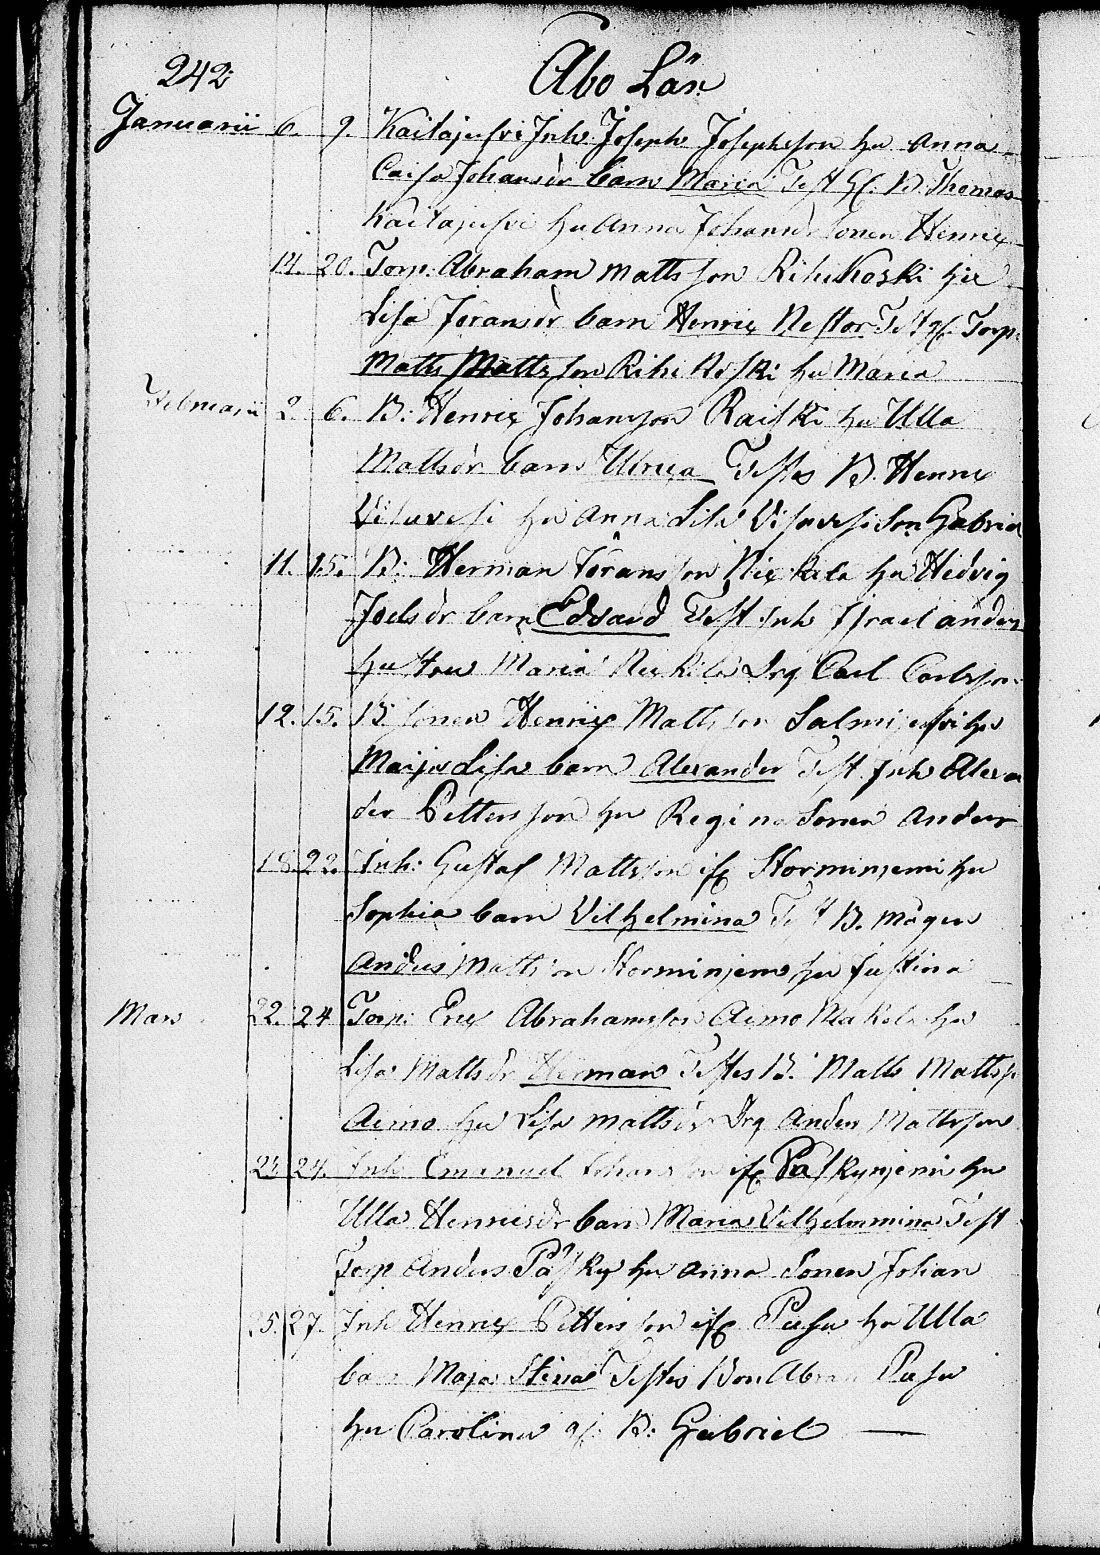 242
Åbo Län
Januarii 6. 9. Kaitajerfvi Inh. Joseph Josephsson hu Anna
Caisa Johansdr barn Maria Test Gf. B. Thomas
Kaitajerfvi hu Anna Johansdr Sonen Henrix
14. 20. Torp: Abraham Mattsson Rihikoski hu
Lisa Jöransdr barn Henrix Nestor Test gf. Torp:
Matts Mattsson Rihikoski hu Maria
Februarii 2. 6. B: Henrix Johansson Raiski hu Ulla
Mattsdr barn Ulrica Testes B. Henrix
Visavesi hu Anna Lisa Visavesi Son Gabriel
11. 15. B: Herman Jöransson Nixkila hu Hedvig
Joelsdr barn Edvard Test Inh Israel Anders
hustru Maria Nixkila Drg Carl Carlsson
12. 15. B. Sonen Henrix Mattsson Salmijerfvi hu
Maija Lisa barn Alexander Test Inh Allexan
der Pettersson hu Regina Sonen Anders
18. 22. Inh: Gustaf Mattsson if Storminjemi hu
Sophia barn Vilhelmina Test B. Mågen
Anders Mattsson Storminjemi hu Justina
Mars 22. 24 Torp: Erix Abrahamsson Aimo Makela hu
Lisa Mattsdr Herman Testes B. Matts Mattss
Aimo hu Lisa Mattsdr Drg Anders Mattsson
24. Inh Emanuel Johansson if Påskynjemi hu
Ulla Henricsdr barn Maria Vilhelmmina Test
Torp Anders Påsky hu Anna Sonen Johan
25. 27. Inh Henrix Pettersson if Pusa hu Ulla
barn Maja Stina Testes Bon Abram Pusa
hu Carolina gf. B: Gabriel